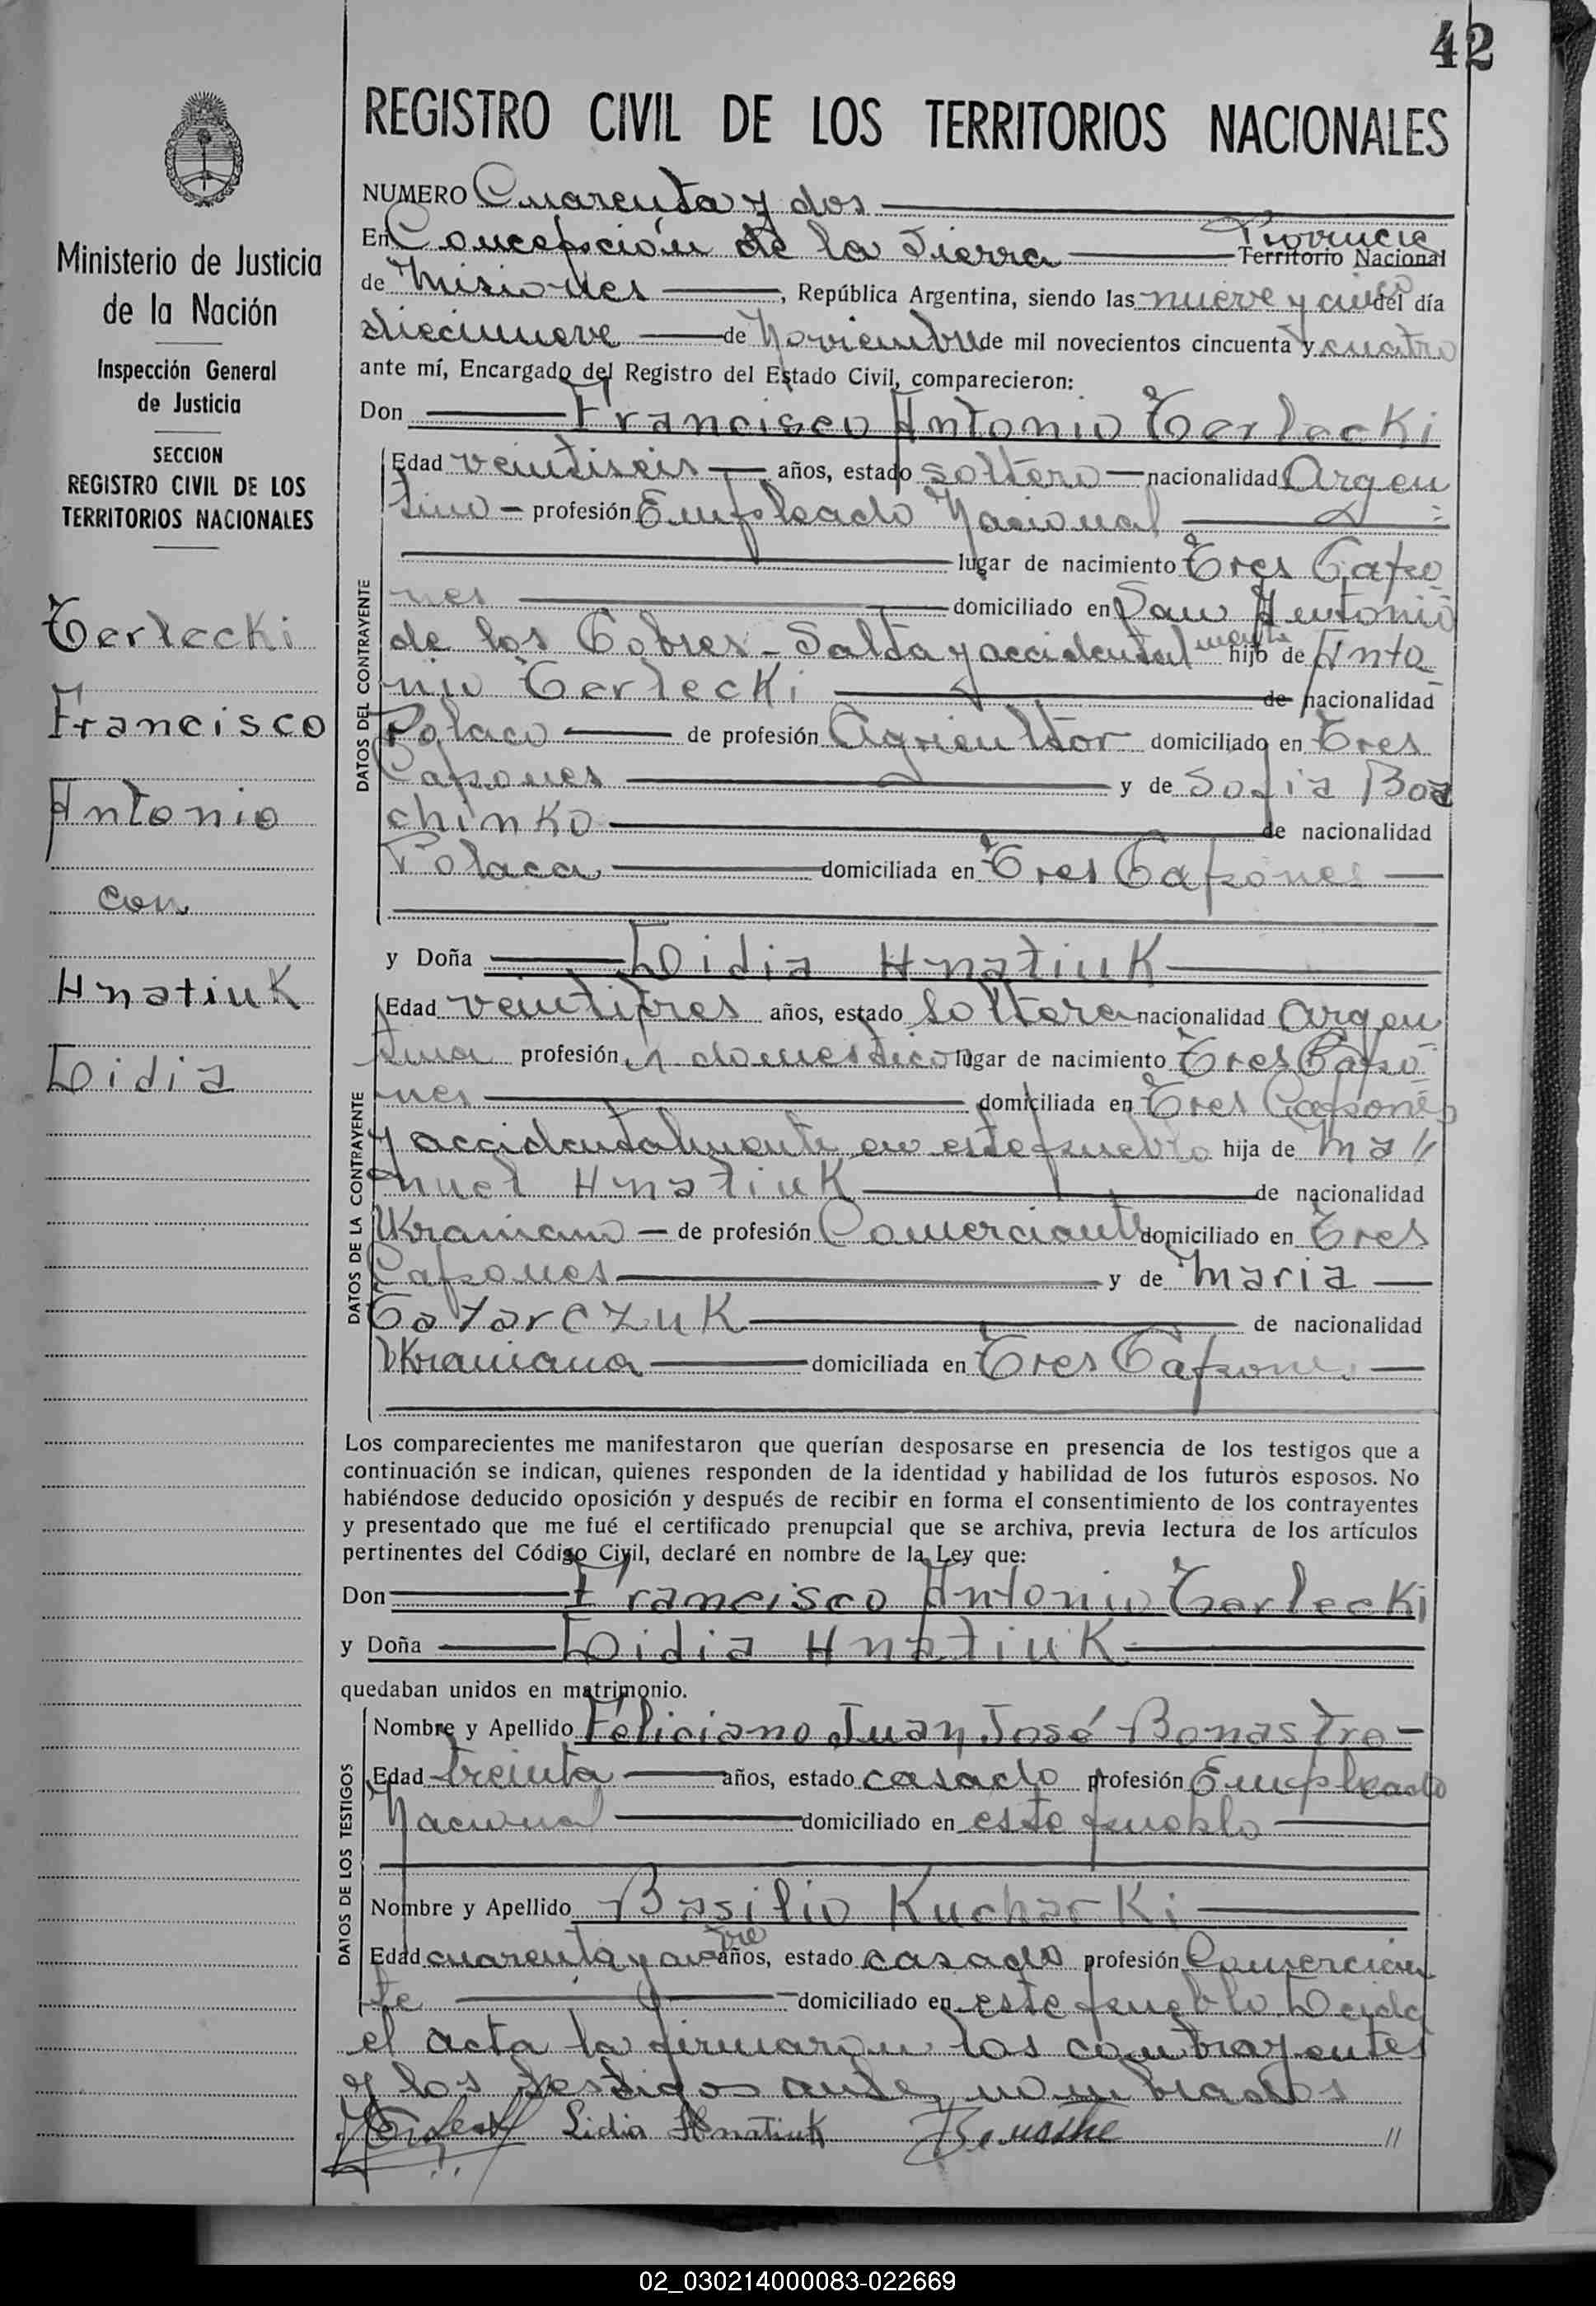 42
REGISTRO CIVIL DE LOS TERRITORIOS NACIONALES
Ministerio de Justicia
de la Nación
Inspección General
de Justicia
SECCION
REGISTRO CIVIL DE LOS
TERRITORIOS NACIONALES
Terlecki
Francisco
Antonio
con
Hnatiuk
Lidia
NUMERO Cuarenta y dos
En Concepción de la Sierra Provincia Territorio Nacional
de Misiones, República Argentina, siendo las nueve y cinco del día
diecinueve de Noviembre de mil novecientos cincuenta y cuatro
ante mí, Encargado del Registro del Estado Civil, comparecieron:
Don Francisco Antonio Terlecki
DATOS DEL CONTRAYENTE
Edad veintiseis años, estado soltero nacionalidad Argen
tino - profesión Empleado Nacional
lugar de nacimiento Tres Capo
nes domiciliado en San Antonio
de los Cobres - Salta y accidentalmente hijo de Anto
nio Terlecki de nacionalidad
Polaco de profesión Agricultor domiciliado en Tres
Capones y de Sofia Boa
chinko de nacionalidad
Polaca domiciliada en Tres Capones
y Doña Lidia Hnatiuk
DATOS DE LA CONTRAYENTE
Edad veintitres años, estado soltera nacionalidad Argen
tina profesión domestico lugar de nacimiento Tres Capo
nes domiciliada en Tres Capones
y accidentalmente en este pueblo hija de Ma //
nuel Hnatiuk de nacionalidad
Ukraniano - de profesión Comerciante domiciliado en Tres
Capones y de Maria
de nacionalidad
Ukraniana domiciliada en Tres Capones
Los comparecientes me manifestaron que querían desposarse en presencia de los testigos que a
continuación se indican, quienes responden de la identidad y habilidad de los futuros esposos. No
habiéndose deducido oposición y después de recibir en forma el consentimiento de los contrayentes
y presentado que me fué el certificado prenupcial que se archiva, previa lectura de los artículos
pertinentes del Código Civil, declaré en nombre de la Ley que:
Don Francisco Antonio Terlecki
y Doña Lidia Hnatiuk
quedaban unidos en matrimonio.
DATOS DE LOS TESTIGOS
Nombre y Apellido Feliciano Juan José Bonastre
Edad treinta años, estado casado profesión Empleado
Nacional domiciliado en este pueblo
Nombre y Apellido Basilio Kucharki
Edad cuarenta y años, estado casado profesión Comercian
te domiciliado en este pueblo Leida
el acta la firmaron los contrayentes
y los testigos ante nombrados
Lidia Hnatiuk
//
02_030214000083-022669